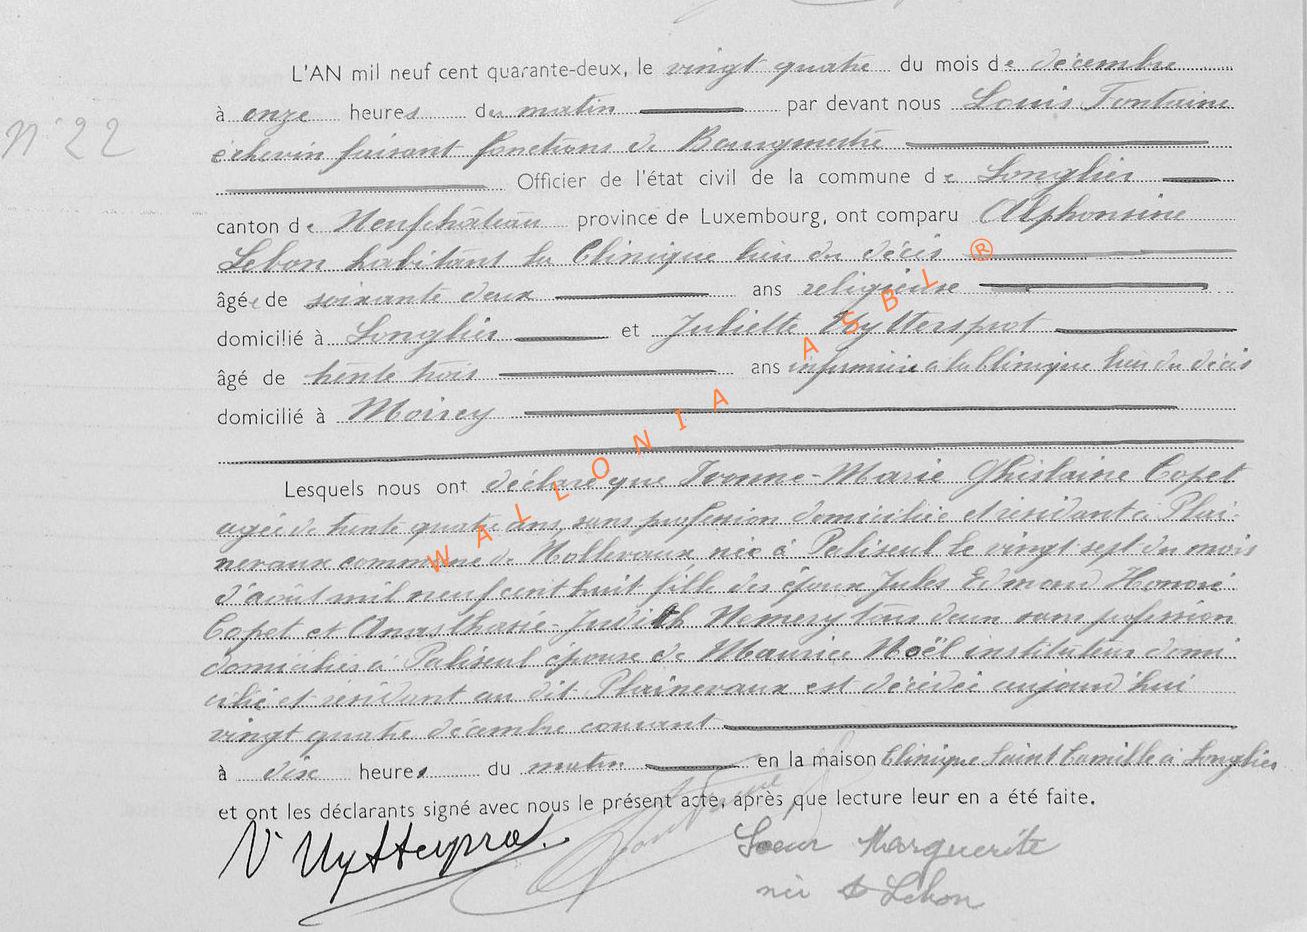 L'AN mil neuf cent quarante-deux, le vingt quatre du mois de décembre
N° 22
à onze heures du matin par devant nous Louis Fontaine
échevin faisant fonctions de Bourgmestre
Officier de l'état civil de la commune de Longlier
canton de Neufchâteau province de Luxembourg, ont comparu Alphonsine
Lebon habitant la Clinique lieu du décès
âgée de soixante deux ans religieuse
domicilié à Longlier et Juliette Uyttersprot
âgé de trente trois ans infirmière à la Clinique lieu du décès
domicilié à Moircy
Lesquels nous ont déclaré que Ivonne-Marie Ghislaine Copet
agée de trente quatre ans, sans profession domiciliée et résidant à Plai-
nevaux commune de Mollevaux née à Paliseul le vingt sept du mois
d'août mil neuf cent huit fille des époux Jules Edmond Honoré
Copet et Anasthasie-Judith Nemery tous deux sans profession
domiciliés à Paliseul épouse de Maurice Noël instituteur domi
cilié et résidant au dit Plainevaux est décédée aujourd'hui
vingt quatre décembre courant
à dix heures du matin en la maison Clinique Saint Camille à Longlier
et ont les déclarants signé avec nous le présent acte, après que lecture leur en a été faite.
Soeur Marguerite
née Lebon
WALLONIA ASBL ®